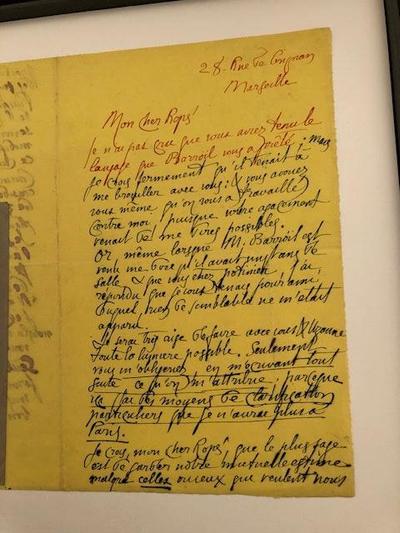 28. Rue de
Marseille
Mon Cher Rops!
je n'ai pas cru que vous aviez tenu le
langage que Barroil vous a prêté; mais
je crois fermement qu'il tenait à
me brouiller avec vous; & vous avouez
vous même qu'on vous a travaillé
contre moi puisque votre agacement
venait de me
Or, même lorsque M. Barroil est
venu me dire qu'il avait
salle & que vous j'ai
répondu que je vous tenais pour ami
& que rien de semblable ne m'était
apparu.
Je serai très aise de faire avec vous &
toute la lumière possible. Seulement
vous m'obligerez en m'écrivant tout
suite ce qu'on m'attribue, parceque
ici j'ai des moyens de
particuliers que je n'aurai plus à
Paris.
Je crois, mon cher Rops! que le plus sage
est de garder notre mutuelle estime
malgré celles ou ceux qui veulent nous